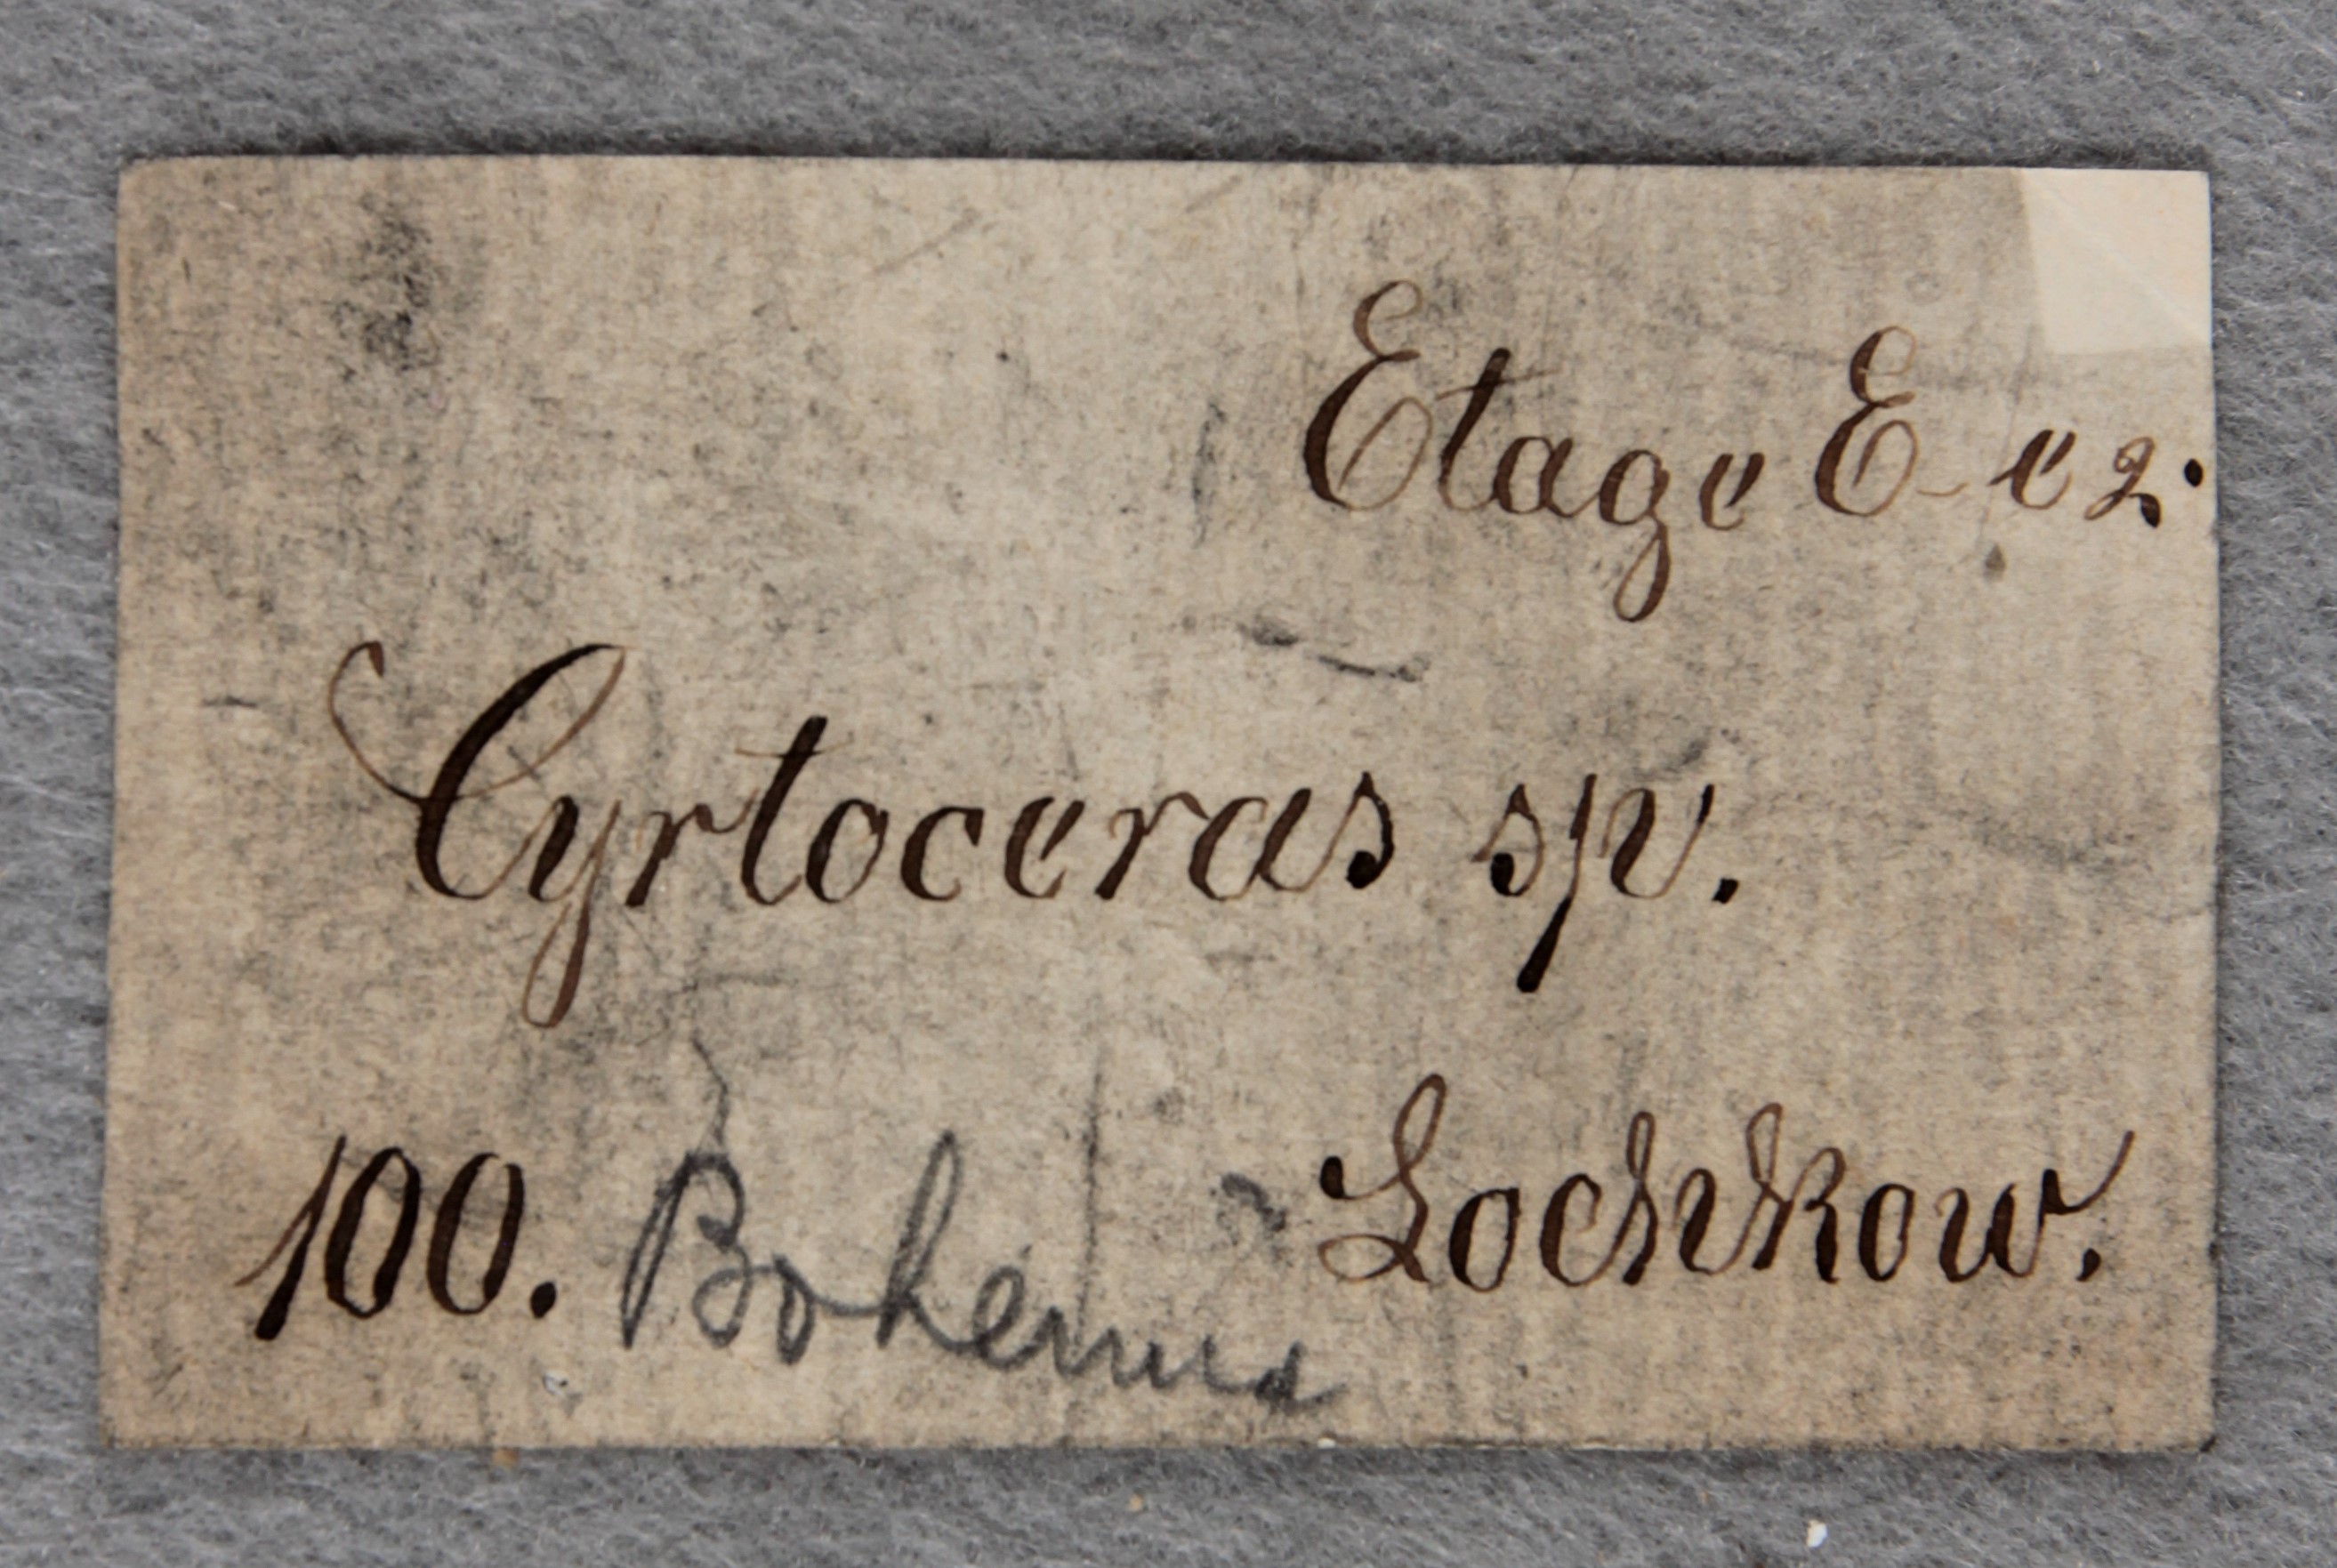 Etage E-e2.
Cyrtoceras sp.
100. Bohemia Lochkow.